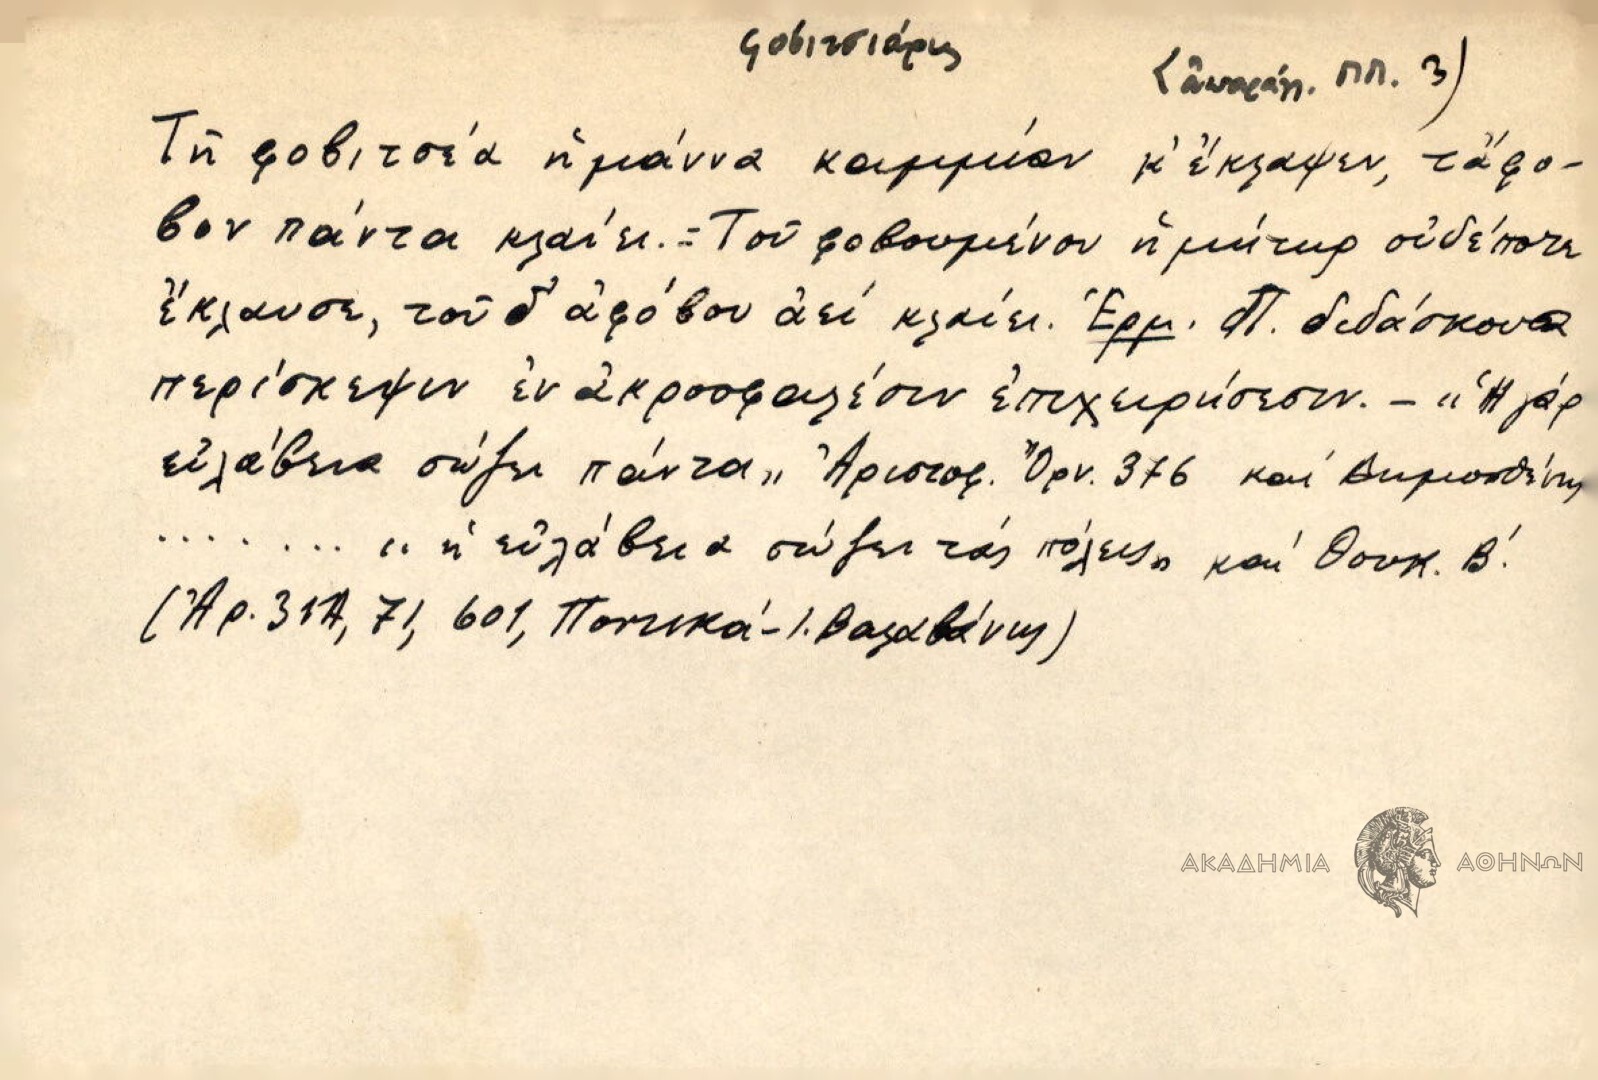 φοβιτσιάρης
(ἀπαράλ. ΠΠ. 3)
Τῆ φοβιτσέα ἡ μάννα καμμίαν κ' ἔκλαψεν, τἄφο-
βον πάντα κλαίει. = Τοῦ φοβουμένου ἡ μήτηρ οὐδέποτε
ἔκλαυσε, τοῦ δ' ἀφόβου ἀεί κλαίει. Ἑρμ. Π. διδάσκουσα
περίσκεψιν ἐν ἀκροσφαλέσιν ἐπιχειρήσεσιν. - "Ἡ γάρ
εὐλάβεια σώζει πάντα" Ἀριστοφ. Ὄρν. 376 καί Δημοσθένης
........ "ἡ εὐλάβεια σώζει τάς πόλεις" καί Θουκ. Β'.
(Ἀρ. 31Α, 71, 601, Ποντικά - Ι. Βαλαβάνης)
ΑΚΑΔΗΜΙΑ ΑΘΗΝΩΝ